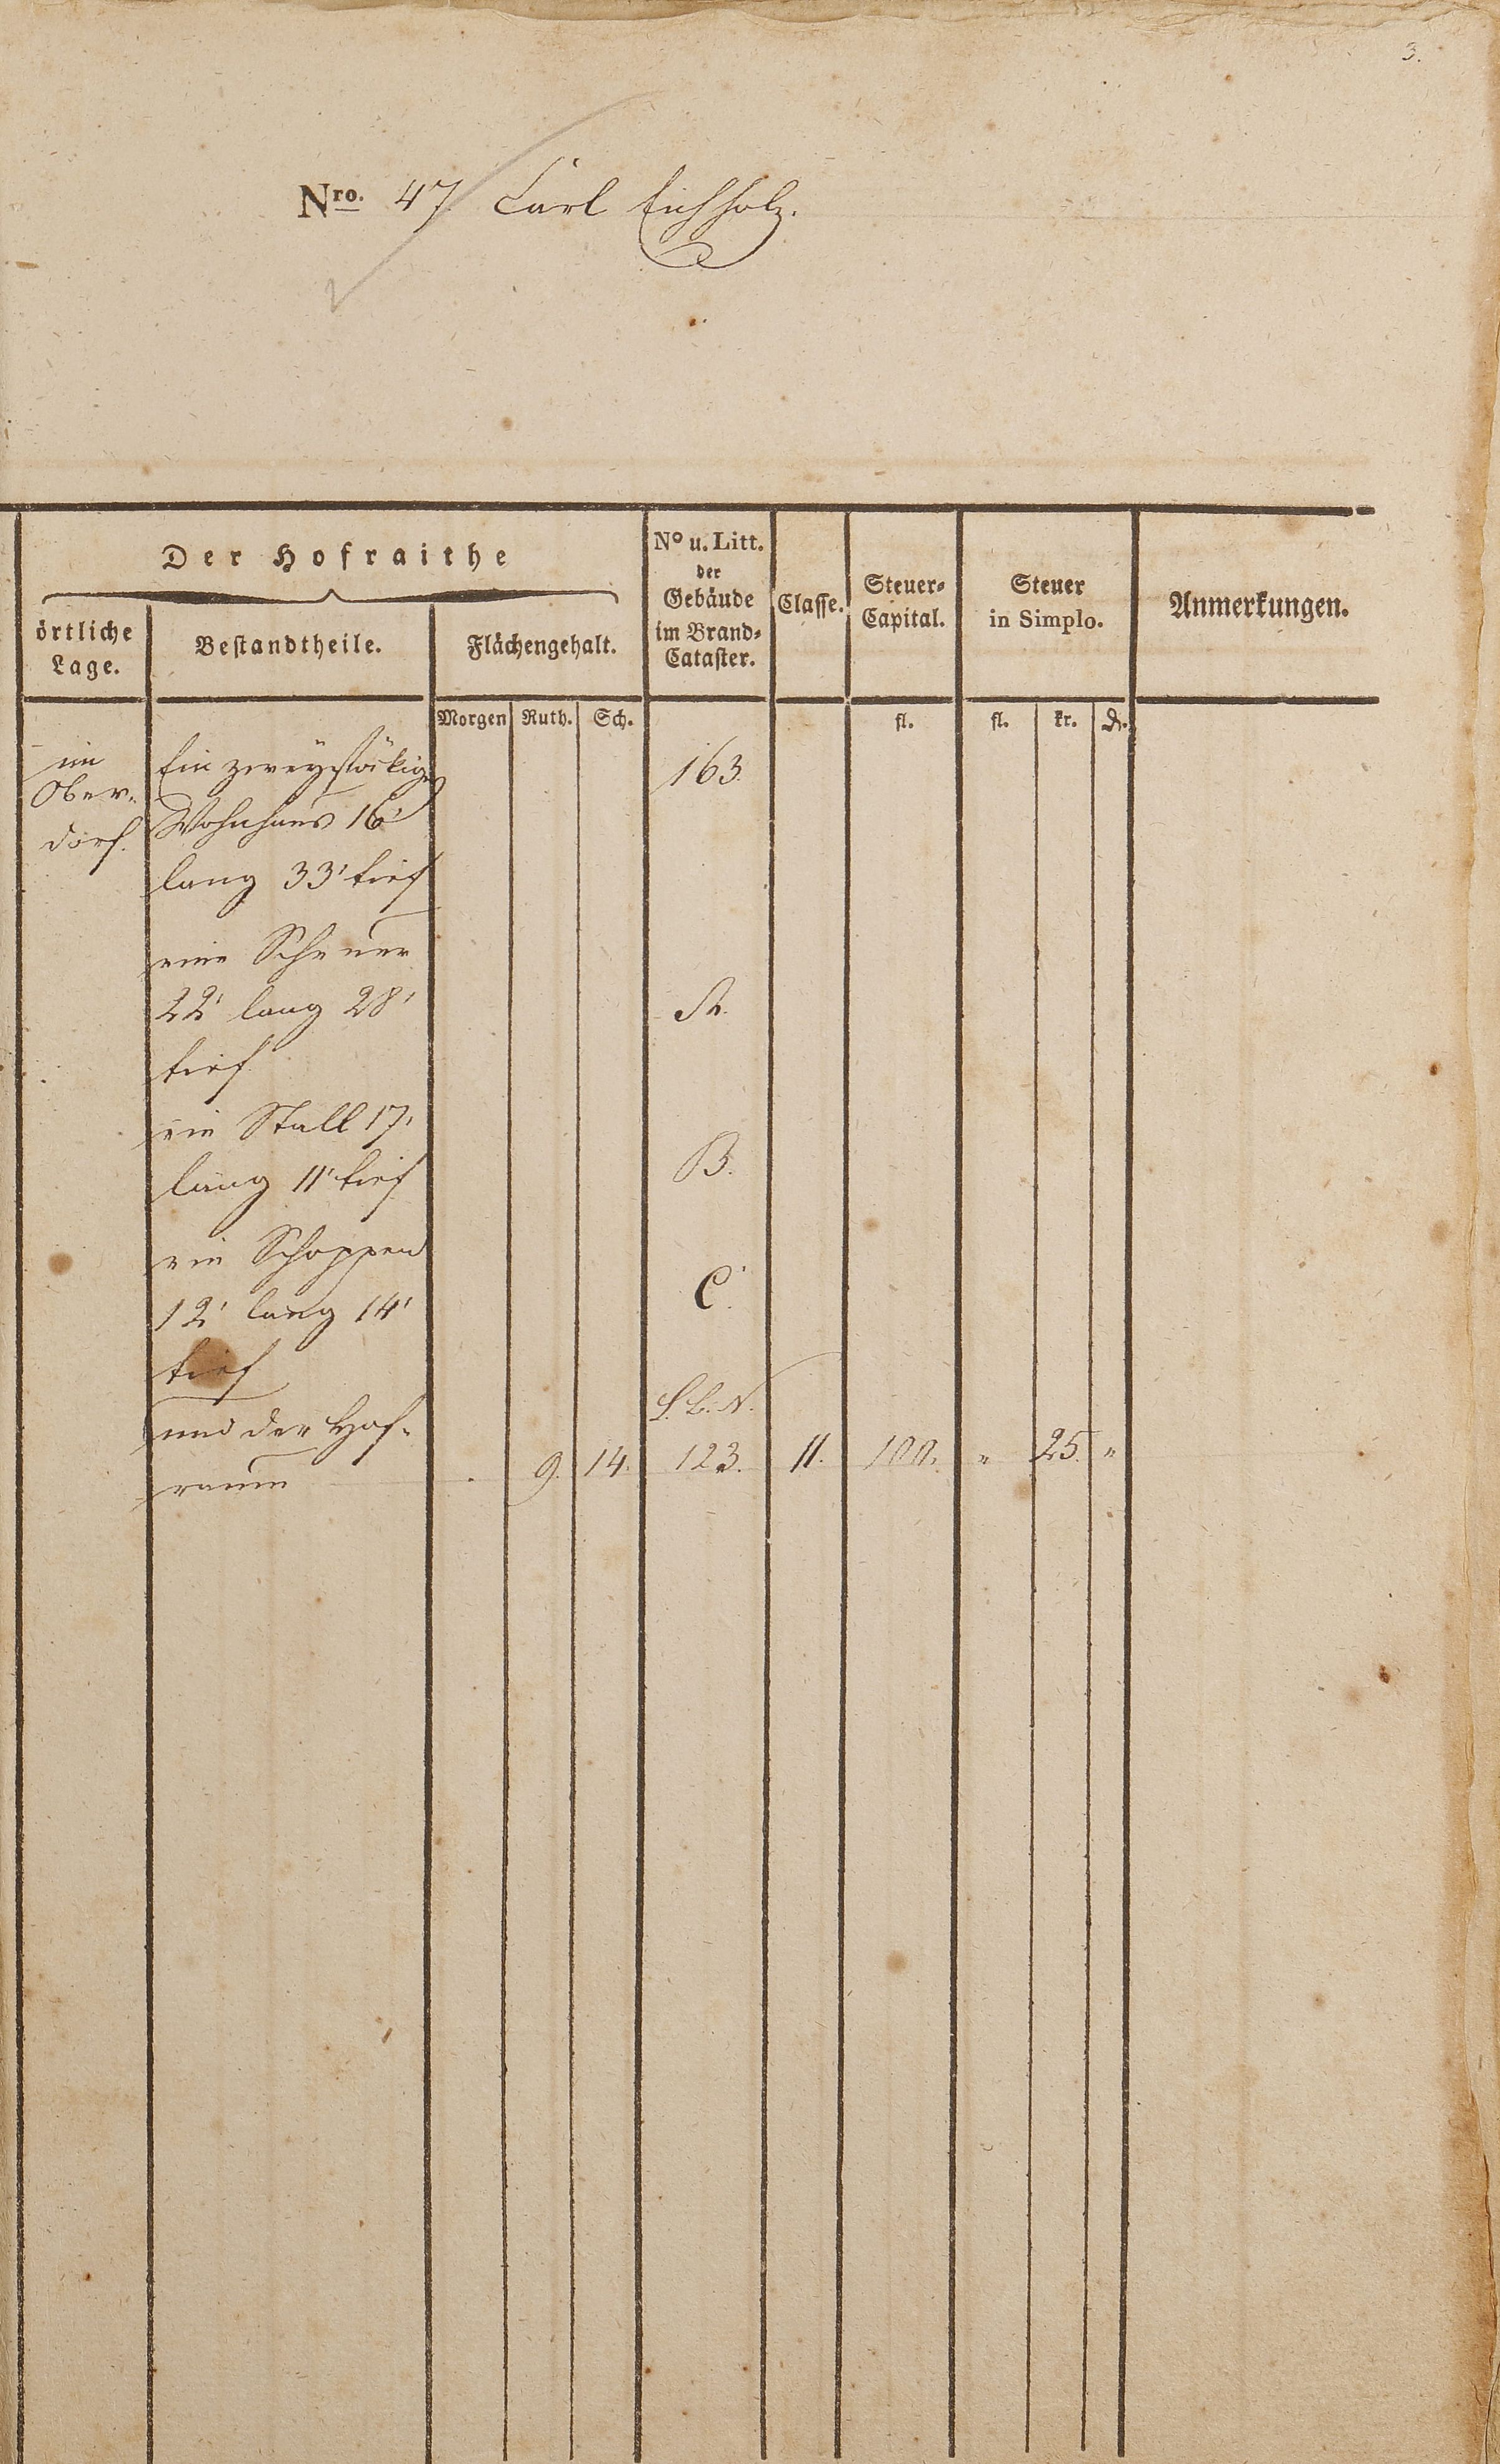 3.
Nro. 47. Carl Eichholz.
Der Hofraithe
örtliche Lage.
Bestandtheile.
Flächengehalt.
Nº u. Litt. der Gebäude im Brand-Cataster.
Classe.
Steuer-Capital.
Steuer in Simplo.
Anmerkungen.
Morgen Ruth. Sch. fl. fl. kr. ₰.
im Ein zweystökiges 163.
Ober- Wohnhaus 16'
dorf. lang 33' tief
eine Scheuer
22' lang 28' A.
tief
ein Stall 17'
lang 11' tief B.
ein Schoppen
12' lang 14' C.
tief
und der Hof- L. B. N.
raum 9. 14. 123. 11. 100. " 25. "